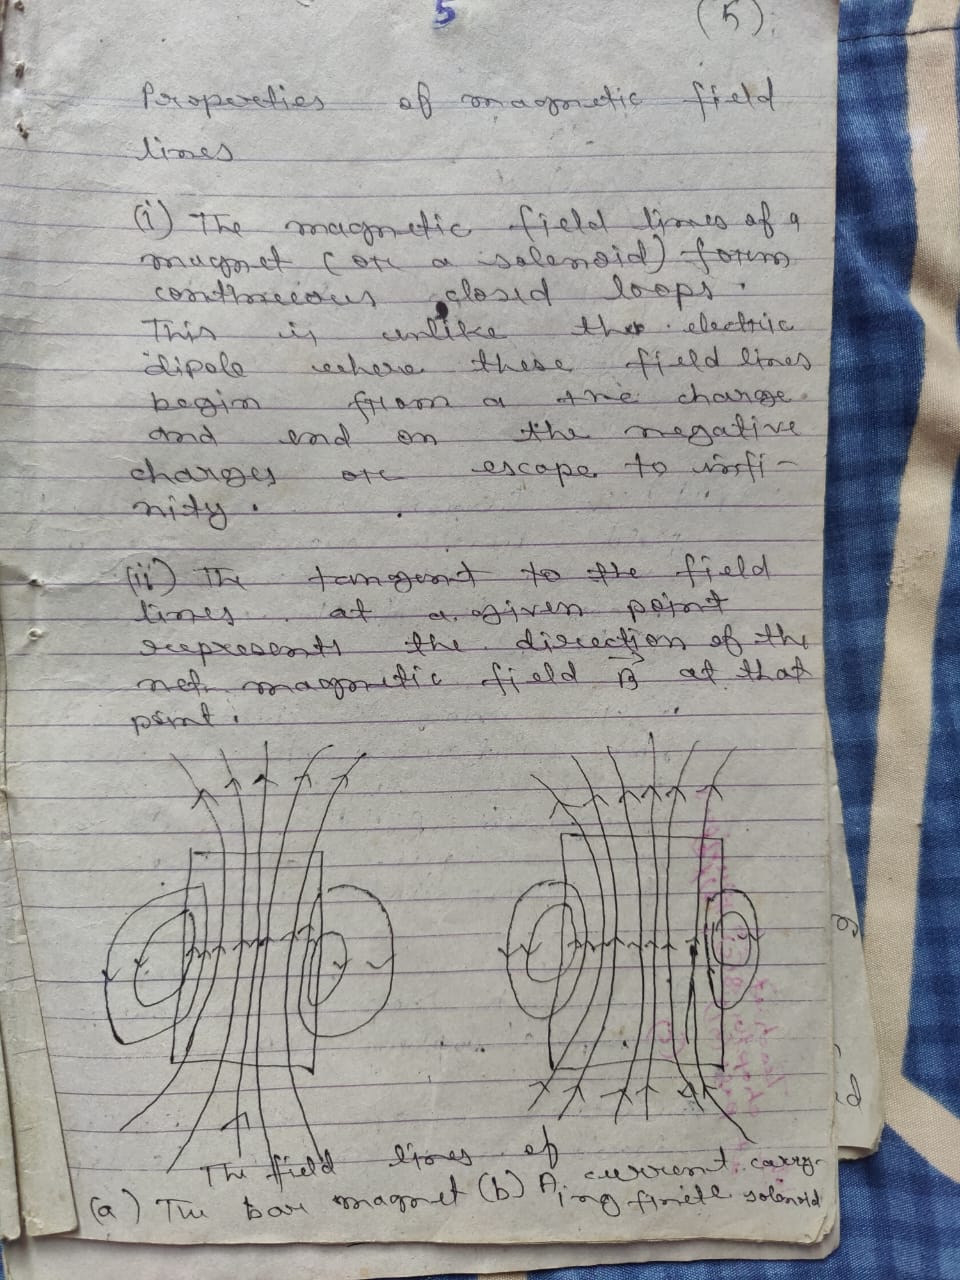 5
(5).
Properties of magnetic field
lines
(i) The magnetic field lines of a
magnet (or a solenoid) form
continuous closed loops.
This is unlike the electric
dipole where these field lines
begin from a +ve charge
and end on the negative
charges or escape to infi-
nity.
(ii) The tangent to the field
lines at a given point
represents the direction of the
net magnetic field B⃗ at that
point.
The field lines of
(a) The bar magnet (b) A current carry-
ing finite solenoid